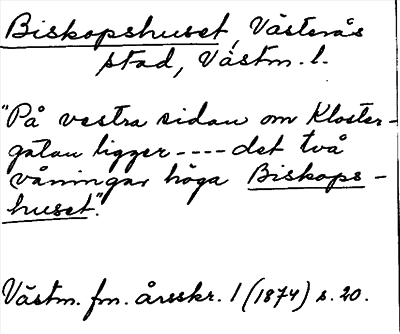 Biskopshuset, Västerås
stad, Västm. l.
"På vestra sidan om Kloster-
gatan ligger ---- det två
våningar höga Biskops-
huset".
Västm. fm. årsskr. 1 (1874) s. 20.